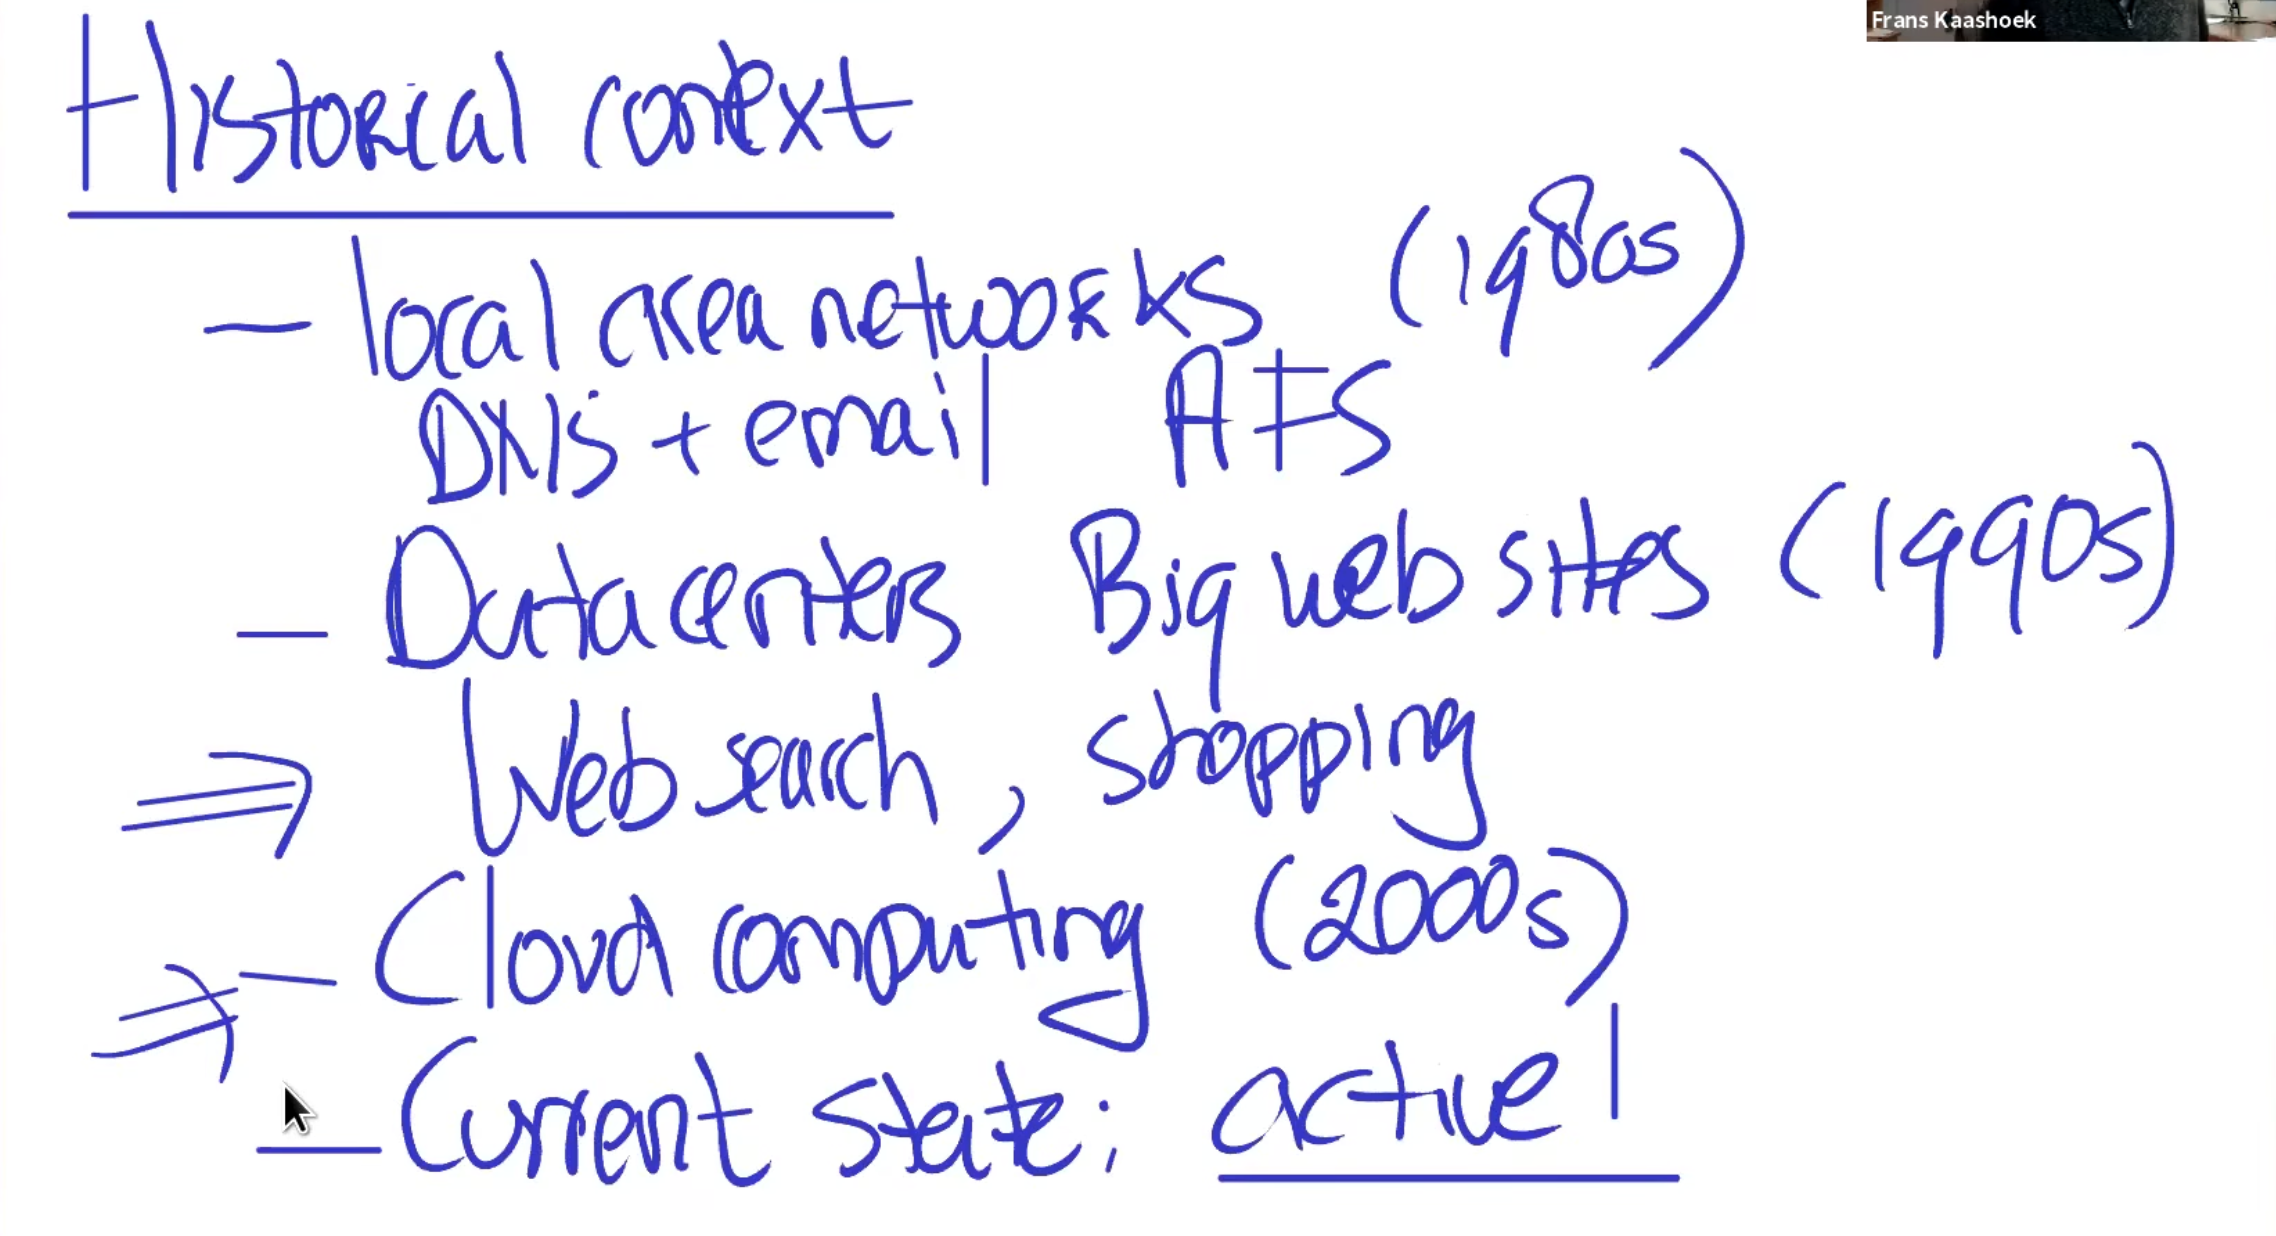 Frans Kaashoek
Historical context
- local area networks (1980s)
DNS + email AFS
- Datacenters Big web sites (1990s)
⇒ Web search, shopping
⇒ - Cloud computing (2000s)
- Current state: active!